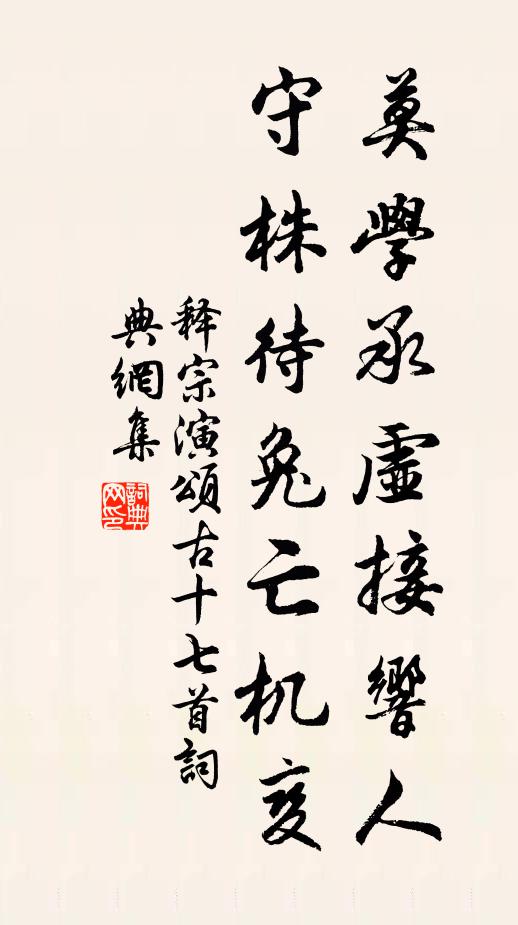 莫學承虛接響人
守株待兔亡机变
释宗演頌古十七首詞
典網集
詞典網印